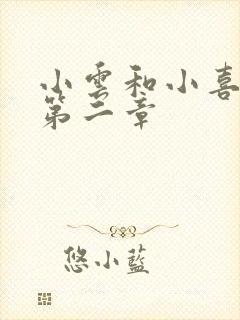 小雲和小喜
第二章
悠小藍